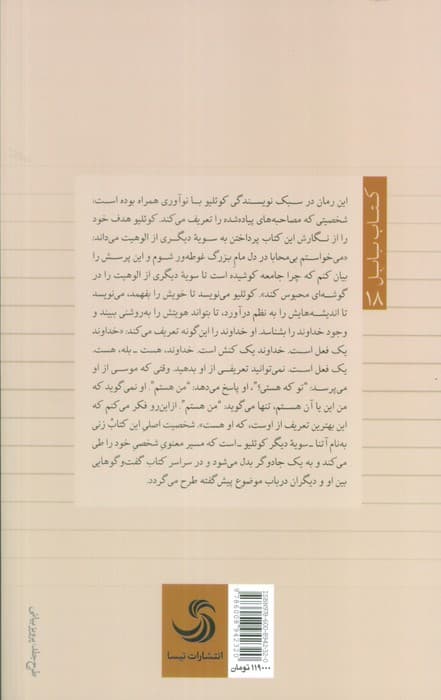 کتاب بابل
۱۸
این رمان در سبک نویسندگی کوئلیو با نوآوری همراه بوده است؛
شخصیتی که مصاحبه‌های پیاده‌شده را تعریف می‌کند. کوئلیو هدف خود
را از نگارش این کتاب پرداختن به سویهٔ دیگری از الوهیت می‌داند:
«می‌خواستم بی‌محابا در دل مام بزرگ غوطه‌ور شوم و این پرسش را
بیان کنم که چرا جامعه کوشیده است تا سویهٔ دیگری از الوهیت را در
گوشه‌ای محبوس کند». کوئلیو می‌نویسد تا خویش را بفهمد، می‌نویسد
تا اندیشه‌هایش را به نظم درآورد، تا بتواند هویتش را به‌روشنی ببیند و
وجود خداوند را بشناسد. او خداوند را این‌گونه تعریف می‌کند: «خداوند
یک فعل است. خداوند یک کنش است. خداوند، هست ـ بله، هست.
یک فعل است. نمی‌توانید تعریفی از او بدهید. وقتی که موسی از او
می‌پرسد: "تو که هستی؟"، او پاسخ می‌دهد: "من هستم". او نمی‌گوید که
من این یا آن هستم، تنها می‌گوید: "من هستم". ازاین‌رو فکر می‌کنم که
این بهترین تعریف از اوست، که او هست». شخصیت اصلی این کتابْ زنی
به‌نام آتنا ـ سویهٔ دیگر کوئلیو ـ است که مسیر معنوی شخصیِ خود را طی
می‌کند و به یک جادوگر بدل می‌شود و در سراسر کتاب گفت‌وگوهایی
بین او و دیگران درباب موضوع پیش‌گفته طرح می‌گردد.
انتشارات تیسا
۱۱۹۰۰۰ تومان
طرح جلد: پرویز بیانی